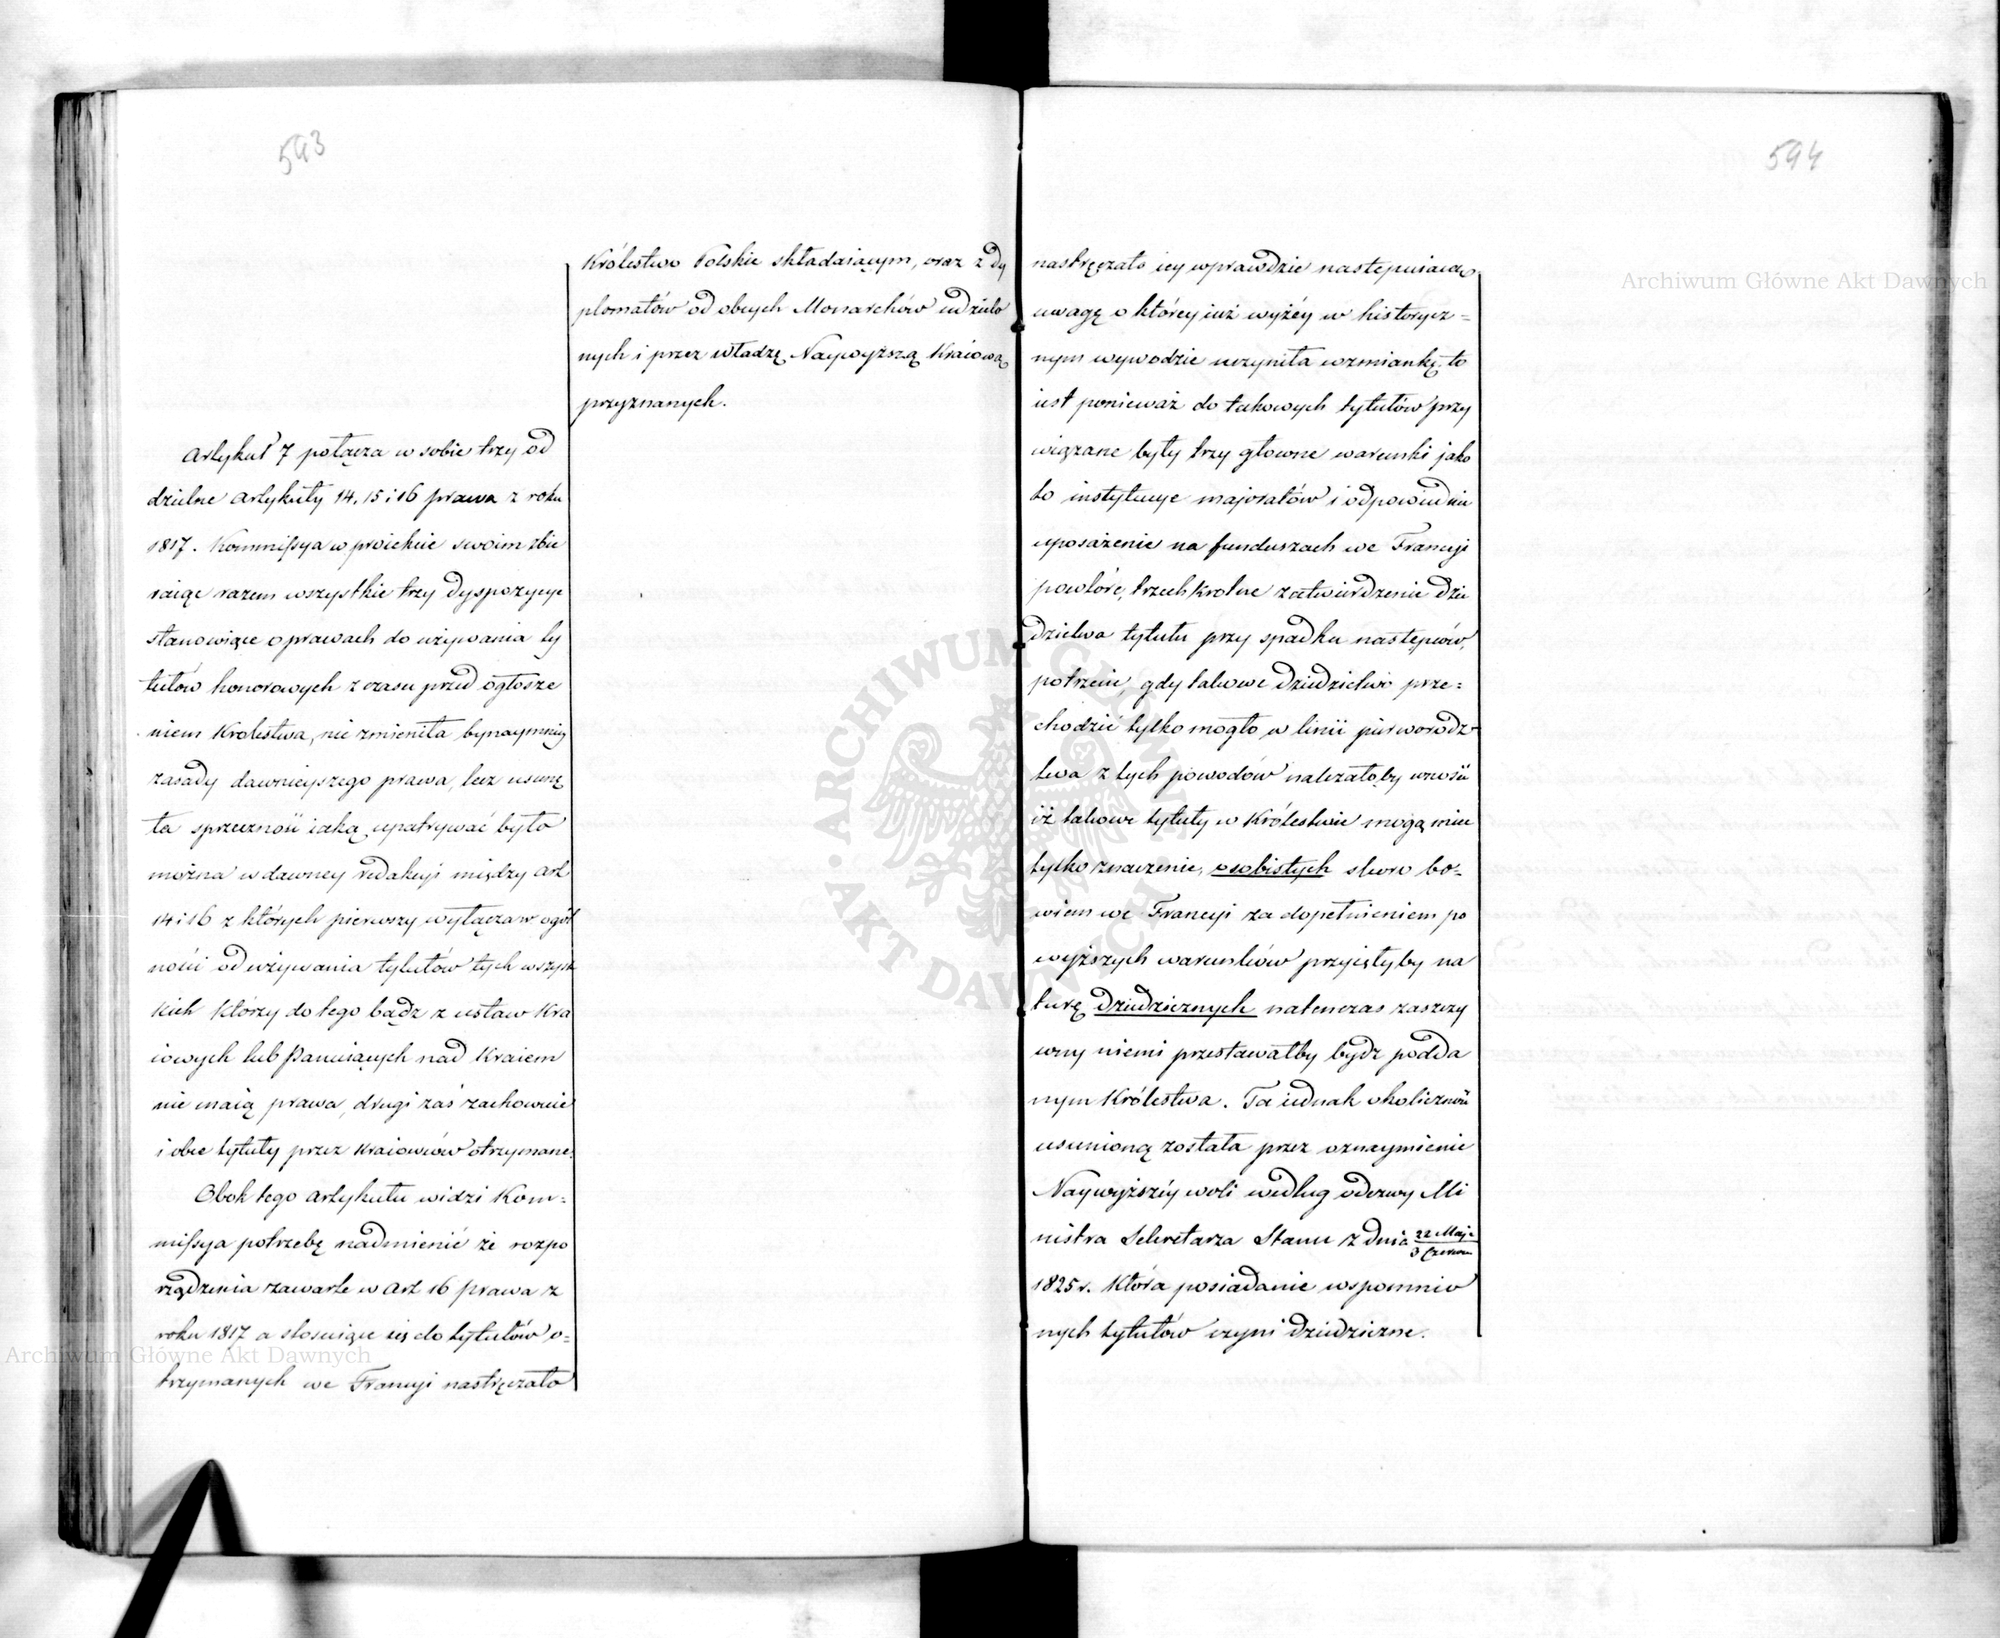 593
Królestwo Polskie składaiącym, oraz z dy
plomatów od obcych Monarchów udzielo
nych i przez władzę Naywyższą Kraiową
przyznanych.
Artykuł 7 połącza w sobie trzy od
dzielne artykuły 14, 15 i 16 prawa z roku
1817. Kommissya w proiekcie swoim zbie
raiąc razem wszystkie trzy dyspozycye
stanowiące o prawach do używania ty
tułów honorowych z czasu przed ogłosze
niem Krolestwa, nie zmieniła bynaymniey
zasady dawnieyszego prawa, lecz usunę
ła sprzeczność iaką upatrywać było
można w dawney redakcyi między art
14 i 16 z których pierwszy wyłącza w ogól
ności od używania tytułów tych wszyst
kich którzy do tego bądz z ustaw Kra
iowych lub Panuiących nad Kraiem
nie maią prawa, drugi zaś zachowuie
i obce tytuły przez Kraiowców otrzymane.
Obok tego artykułu widzi Kom=
missya potrzebę nadmienić że rozpo
rządzenia zawarte w art 16 prawa z
roku 1817 a stosuiące się do tytułów o=
trzymanych we Francyi nastręczało
594
nastręczało iey wprawdzie następuiącą
uwagę o którey iuż wyżéy w historycz=
nym wywodzie uczyniła wzmiankę to
iest ponieważ do takowych tytułów przy
wiązane były trzy głowne warunki jako
to instytucye majoratów i odpowiednie
uposażenie na funduszach we Francyi
powtóre, trzechkrotne zatwierdzenie dzie
dzictwa tytułu przy spadku następców,
potrzecie, gdy takowe dziedzictwo prze=
chodzić tylko mogło w linii pierworodz
twa z tych powodów należałoby wnosić
iż takowe tytuły w Królestwie mogą mieć
tylko znaczenie, osobistych skoro bo=
wiem we Francyi za dopełnieniem po
wyższych warunków przyięłyby na
turę dziedzicznych natenczas zaszczy
cony niemi przestawałby bydz podda
nym Królestwa. Ta iednak okoliczność
usunioną została przez oznaymienie
Naywyższéy woli według odezwy Mi
nistra Sekretarza Stanu z dnia 22 Maja
3 Czerwca
1825 r. która posiadanie wspomnio
nych tytułów czyni dziedziczne.
Archiwum Główne Akt Dawnych
Archiwum Główne Akt Dawnych
ARCHIWUM GŁÓWNE AKT DAWNYCH